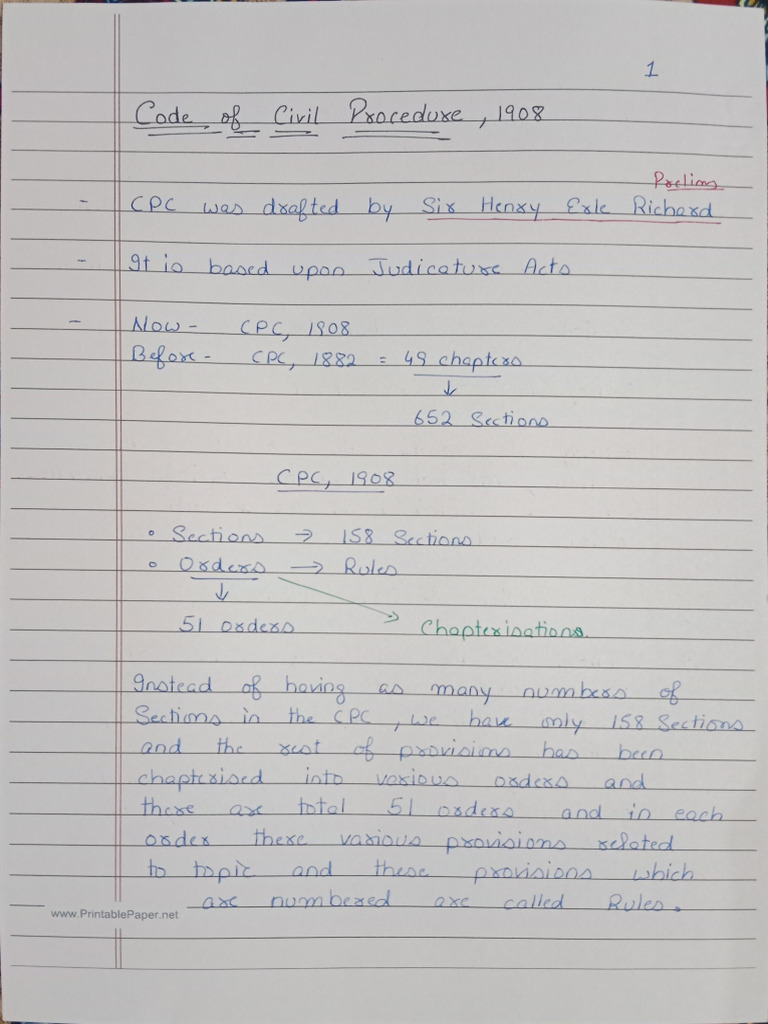 1
Code of Civil Procedure, 1908
Prelims
- CPC was drafted by Sir Henry Erle Richard
- It is based upon Judicature Acts
- Now - CPC, 1908
Before - CPC, 1882 = 49 chapters
↓
652 Sections
CPC, 1908
• Sections → 158 Sections
• Orders → Rules
↓
51 orders Chapterisations.
Instead of having as many numbers of
Sections in the CPC, we have only 158 Sections
and the rest of provisions has been
chapterised into various orders and
there are total 51 orders and in each
order there various provisions related
to topic and these provisions which
are numbered are called Rules.
www.PrintablePaper.net